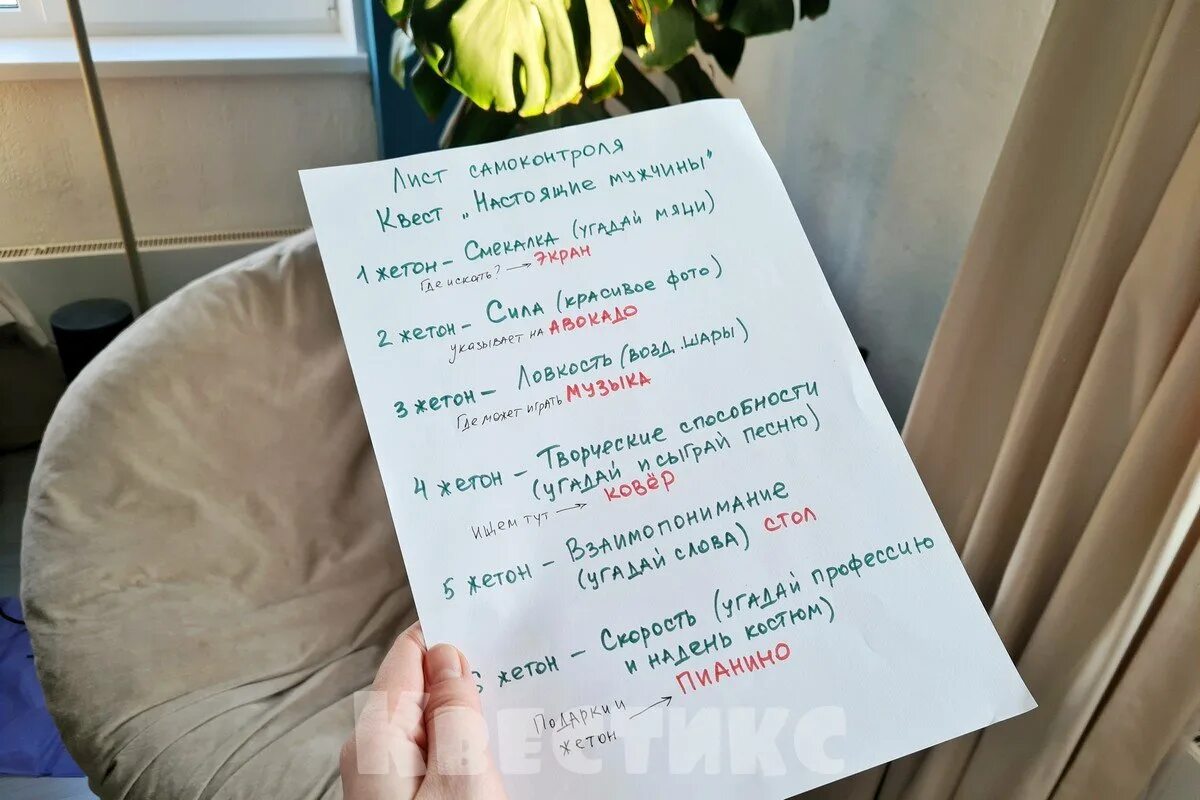 Лист самоконтроля
Квест „Настоящие мужчины"
1 жетон – Смекалка (угадай мяци)
Где искать? → ЭКРАН
2 жетон – Сила (красивое фото)
указывает на АВОКАДО
3 жетон – Ловкость (возд. шары)
Где может играть МУЗЫКА
4 жетон – Творческие способности
(угадай и сыграй песню)
ищем тут → КОВЁР
5 жетон – Взаимопонимание
(угадай слова) СТОЛ
6 жетон – Скорость (угадай профессию
и надень костюм)
Подарки и → ПИАНИНО
жетон
КВЕСТИКС